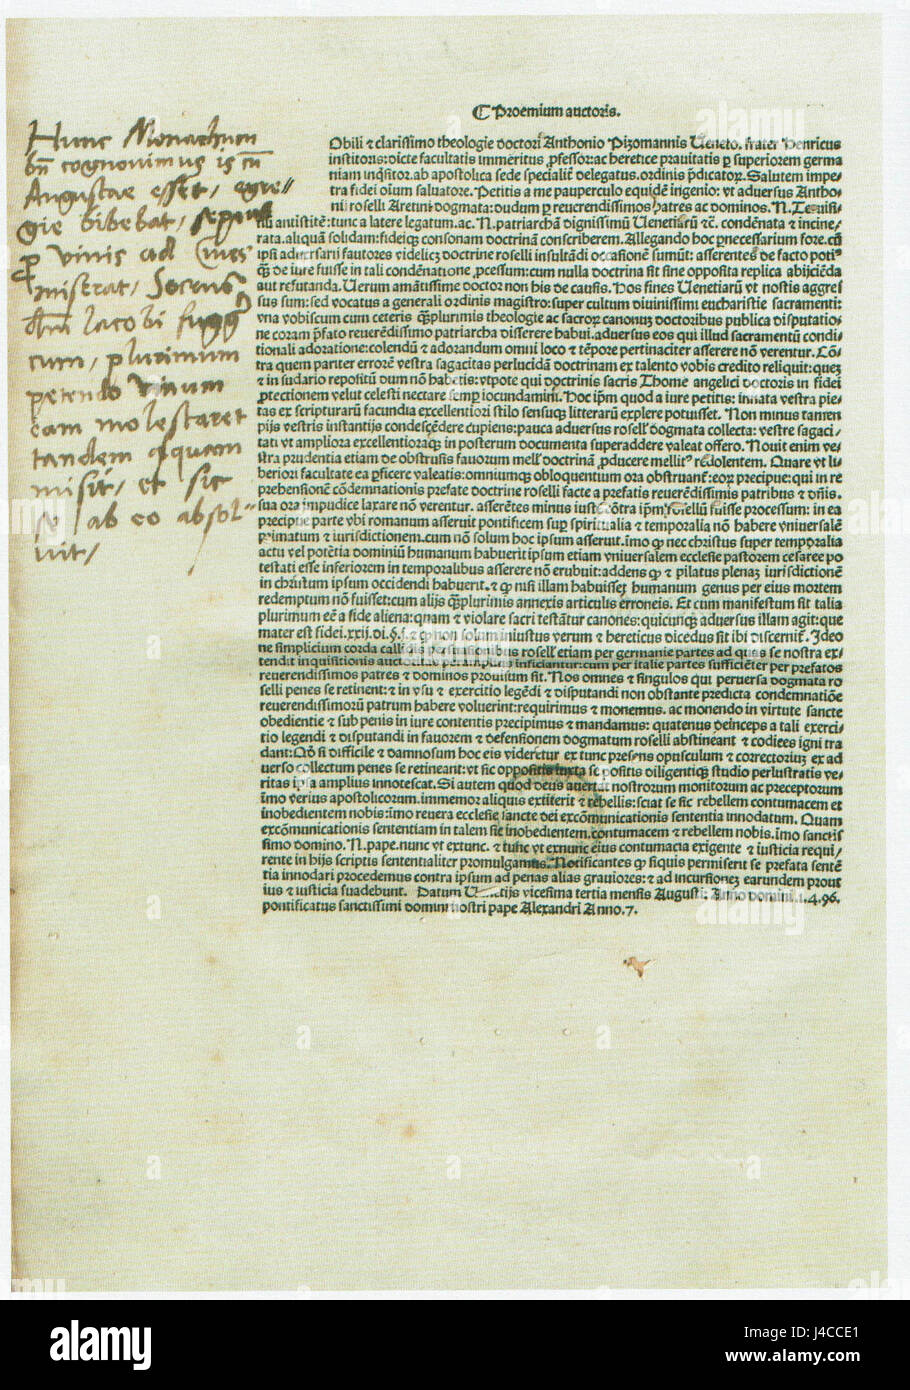 C Proemium auctoris.
Obili ⁊ clarissimo theologie doctori Anthonio Pizomannis Ueneto. frater Henricus
institoris: dicte facultatis immeritus ꝓfessor: ac heretice prauitatis ꝑ superiorem germa
niam inq̄sitor. ab apostolica sede specialiẽ delegatus. ordinis p̄dicatoꝝ. Salutem impe
tra fidei oĩum saluatore. Petitis a me pauperculo equidẽ ingenio: vt aduersus Antho
nĩ roselli Aretini dogmata: dudum ꝑ reuerendissimos patres ac dominos. N.
nũ antistitẽ: tunc a latere legatum. ac. N. patriarchã dignissimũ Uenetiarũ ⁊c̃. condẽnata ⁊ incine
rata. aliquã solidam: fideiqꝫ consonam doctrinã conscriberem. Allegando hoc ꝑnecessarium fore. cũ
ipsi aduersarij fautores videlicꝫ doctrine roselli insultãdi occasionẽ sumũt: asserentes de facto poti⁹
qꝫ de iure fuisse in tali condẽnatione ꝓcessum: cum nulla doctrina sit sine opposita replica abijciẽda
aut refutanda. Uerum amãtissime doctor non bis de causis. Nos fines Uenetiarũ vt nostis aggres
sus sum: sed vocatus a generali ordinis magistro: super cultum diuinissimi eucharistie sacramenti:
vna vobiscum cum ceteris qꝫplurimis theologie ac sacroꝝ canonuꝫ doctoribus publica disputatio-
ne coram p̄fato reuerẽdissimo patriarcha disserere habui. aduersus eos qui illud sacramentũ condi-
tionali adoratione: colendũ ⁊ adorandum omni loco ⁊ tẽpore pertinaciter asserere nõ verentur. Cõ-
tra quem pariter errorẽ vestra sagacitas perlucidã doctrinam ex talento vobis credito reliquit: queꝫ
⁊ in sudario repositũ dum nõ habetis: vtpote qui doctrinis sacris Thome angelici doctoris in fidei
ꝓtectionem velut celesti nectare semꝑ iocundamini. Hoc ip̃m quod a iure petitis: innata vestra pie-
tas ex scripturarũ facundia excellentiori stilo sensuqꝫ litterarũ explere potuisset. Non minus tamen
pijs vestris instantijs condescẽdere cupiens: pauca aduersus rosell̃ dogmata collecta: vestre sagaci-
tati vt ampliora excellentioraqꝫ in posterum documenta superaddere valeat offero. Nouit enim ve-
stra prudentia etiam de obstrusis fauorum mell̃ doctrinã ꝓducere mellit⁹ redolentem. Quare vt li-
beriori facultate ea ꝑficere valeatis: omniumqꝫ obloquentium ora obstruant̃: eoꝝ precipue: qui in re
prehensionẽ cõdemnationis prefate doctrine roselli facte a prefatis reuerẽdissimis patribus ⁊ dñis.
sua ora impudice laxare nõ verentur. asserẽtes minus iuste cõtra ip̃m rosellũ fuisse processum: in ea
precipue parte vbi romanum asseruit pontificem suꝑ spiritualia ⁊ temporalia nõ habere vniuersalẽ
p̃imatum ⁊ iurisdictionem. cum nõ solum hoc ipsum asseruit. ĩmo ꝙ nec christus super temporalia
actu vel potẽtia dominiũ humanum habuerit ipsum etiam vniuersalem ecclesie pastorem cesaree po
testati esse inferiorem in temporalibus asserere nõ erubuit: addens ꝙ ⁊ pilatus plenaꝫ iurisdictionẽ
in christum ipsum occidendi habuerit. ⁊ ꝙ nisi illam habuisseꝫ humanum genus per eius mortem
redemptum nõ fuisset: cum alijs qꝫplurimis annexis articulis erroneis. Et cum manifestum sit talia
plurimum eẽ a fide aliena: quam ⁊ violare sacri testãtur canones: quicunqꝫ aduersus illam agit: que
mater est fidei. xxij. di. §. i. ⁊ ꝙ non solum iniustus verum ⁊ hereticus dicẽdus sit ibi discernit̃. Ideo
ne simplicium corda callidis persuasionibus rosell̃ etiam per germanie partes ad quas se nostra ex-
tendit inquisitionis auctoritas peramplius inficiantur: cum per italie partes sufficiẽter per prefatos
reuerendissimos patres ⁊ dominos prouisum sit. Nos omnes ⁊ singulos qui peruersa dogmata ro
selli penes se retinent: ⁊ in vsu ⁊ exercitio legẽdi ⁊ disputandi non obstante predicta condemnatiõe
reuerendissimorũ patrum habere voluerint: requirimus ⁊ monemus. ac monendo in virtute sancte
obedientie ⁊ sub penis in iure contentis precipimus ⁊ mandamus: quatenus deinceps a tali exerci-
tio legendi ⁊ disputandi in fauorem ⁊ defensionem dogmatum roselli abstineant ⁊ codices igni tra
dant: Qd̃ si difficile ⁊ damnosum hoc eis videretur ex tunc presens opusculum ⁊ correctoriuꝫ ex ad
uerso collectum penes se retineant: vt sic oppositis iuxta se positis diligentiqꝫ studio perlustratis ve-
ritas ipsa amplius innotescat. Si autem quod deus auertat nostrorum monitorum ac preceptorum
ĩmo verius apostolicorum. immemor aliquis extiterit ⁊ rebellis: sciat se sic rebellem contumacem et
inobedientem nobis: ĩmo reuera ecclesie sancte dei excõmunicationis sententia innodatum. Quam
excõmunicationis sententiam in talem sic inobedientem. contumacem ⁊ rebellem nobis. ĩmo sanctis
simo domino. N. pape. nunc vt extunc. ⁊ tunc vt exnunc eius contumacia exigente ⁊ iusticia requi-
rente in hijs scriptis sententialiter promulgamus. Notificantes ꝙ siquis permiserit se prefata sentẽ
tia innodari procedemus contra ipsum ad penas alias grauiores: ⁊ ad incursionẽ earundem prout
ius ⁊ iusticia suadebunt. Datum Uenetijs vicesima tertia mensis Augusti: Anno domini. 1.4.96.
pontificatus sanctissimi domini nostri pape Alexandri Anno. 7.
Hunc Monachum
bñ cognouimus is cũ
Augustae esset, egre=
gie bibebat, sepius
ꝓ vinis ad
miserat, Socrum
dñi Iacobi fuggꝫ
cum, plurimum
petendo vinum
eam molestaret
tandem aquam
misit, et sic
se ab eo absol=
uit,
alamy
Image ID: J4CCE1
www.alamy.com